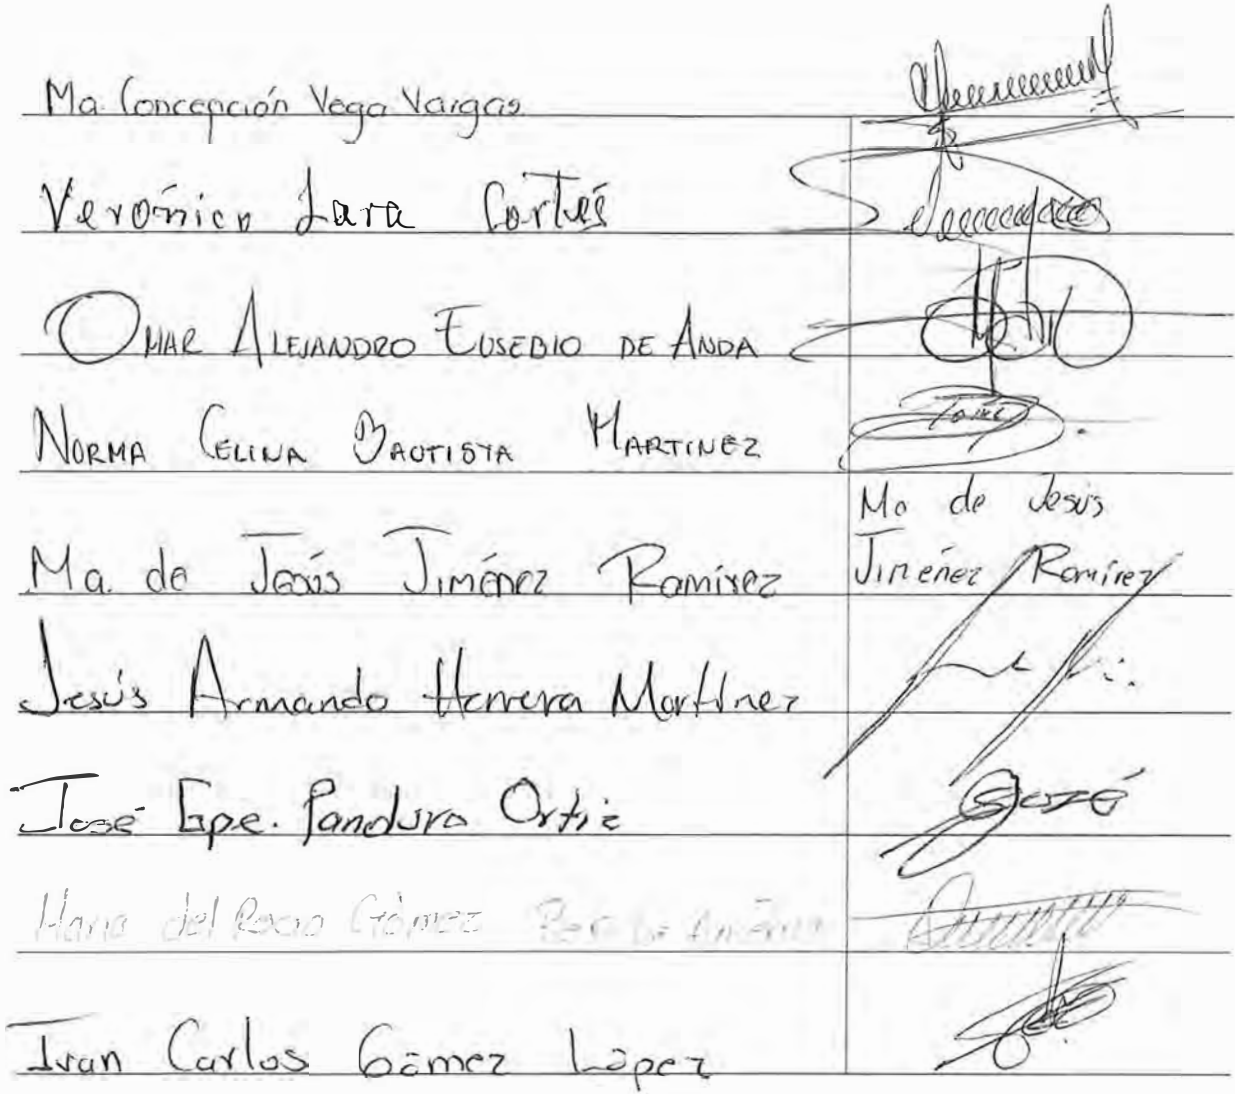 Ma. Concepción Vega Vargas
Verónica Lara Cortés
OMAR ALEJANDRO EUSEBIO DE ANDA
NORMA CELINA BAUTISTA MARTINEZ
Ma de Jesús
Ma. de Jesús Jiménez Ramírez Jiménez Ramírez
Jesús Armando Herrera Martínez
José Gpe. Panduro Ortiz José
Maria del Rocio Gómez
Ivan Carlos Gámez López